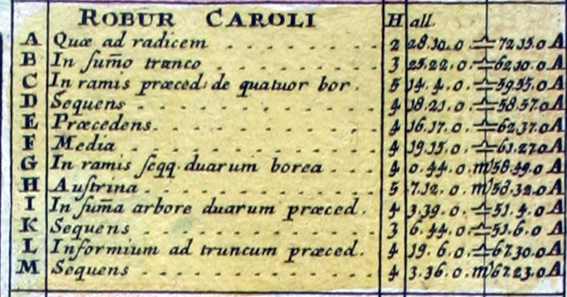 ROBUR CAROLI H all.
A Quæ ad radicem 2 28.10.0.♎72.15.0 A
B In sum̃o trunco 3 25.22.0.♎62.10.0 A
C In ramis præced: de quatuor bor. 5 14.4.0.♎59.55.0 A
D Sequens 4 18.21.0.♎58.57.0 A
E Præcedens. 4 16.17.0.♎62.37.0 A
F Media 4 19.15.0.♎61.27.0 A
G In ramis seqq. duarum borea 4 0.44.0.♏58.49.0 A
H Austrina 5 7.12.0.♏58.32.0 A
I In sum̃a arbore duarum præced. 4 3.39.0.♎51.4.0 A
K Sequens 3 6.44.0.♎51.6.0 A
L Informium ad truncum præced. 4 19.6.0.♎67.30.0 A
M Sequens 4 3.36.0.♏67.23.0 A